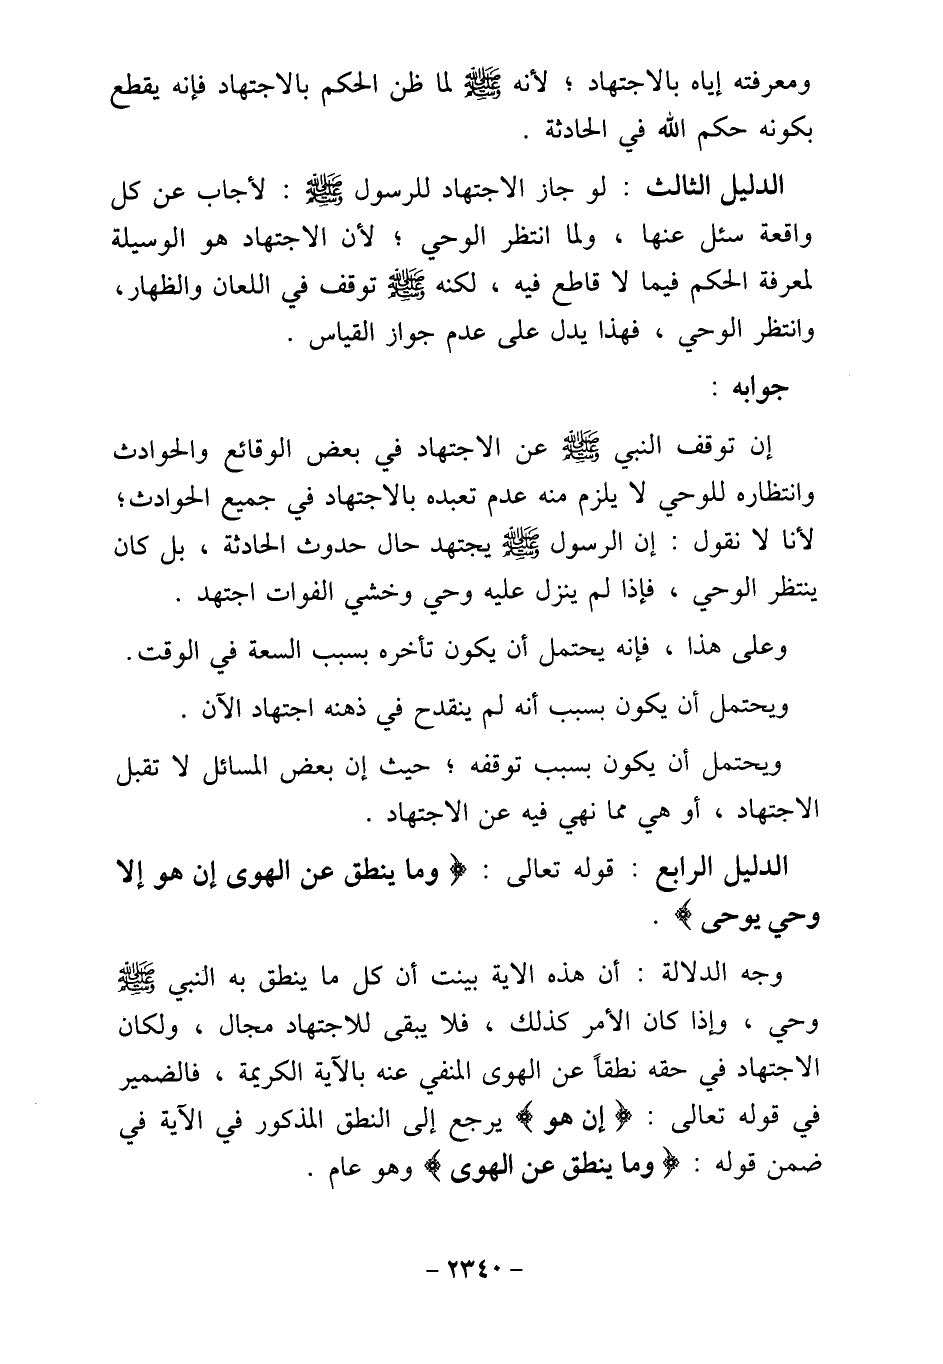 ومعرفته إياه بالاجتهاد ؛ لأنه ﷺ لما ظن الحكم بالاجتهاد فإنه يقطع
بكونه حكم الله في الحادثة .
الدليل الثالث : لو جاز الاجتهاد للرسول ﷺ : لأجاب عن كل
واقعة سئل عنها ، ولما انتظر الوحي ؛ لأن الاجتهاد هو الوسيلة
لمعرفة الحكم فيما لا قاطع فيه ، لكنه ﷺ توقف في اللعان والظهار،
وانتظر الوحي ، فهذا يدل على عدم جواز القياس .
جوابه :
إن توقف النبي ﷺ عن الاجتهاد في بعض الوقائع والحوادث
وانتظاره للوحي لا يلزم منه عدم تعبده بالاجتهاد في جميع الحوادث؛
لأنا لا نقول : إن الرسول ﷺ يجتهد حال حدوث الحادثة ، بل كان
ينتظر الوحي ، فإذا لم ينزل عليه وحي وخشي الفوات اجتهد .
وعلى هذا ، فإنه يحتمل أن يكون تأخره بسبب السعة في الوقت.
ويحتمل أن يكون بسبب أنه لم ينقدح في ذهنه اجتهاد الآن .
ويحتمل أن يكون بسبب توقفه ؛ حيث إن بعض المسائل لا تقبل
الاجتهاد ، أو هي مما نهي فيه عن الاجتهاد .
الدليل الرابع : قوله تعالى : ﴿ وما ينطق عن الهوى إن هو إلا
وحي يوحى ﴾ .
وجه الدلالة : أن هذه الاية بينت أن كل ما ينطق به النبي ﷺ
وحي ، وإذا كان الأمر كذلك ، فلا يبقى للاجتهاد مجال ، ولكان
الاجتهاد في حقه نطقاً عن الهوى المنفي عنه بالآية الكريمة ، فالضمير
في قوله تعالى : ﴿ إن هو ﴾ يرجع إلى النطق المذكور في الآية في
ضمن قوله : ﴿ وما ينطق عن الهوى ﴾ وهو عام .
- ٢٣٤٠ -